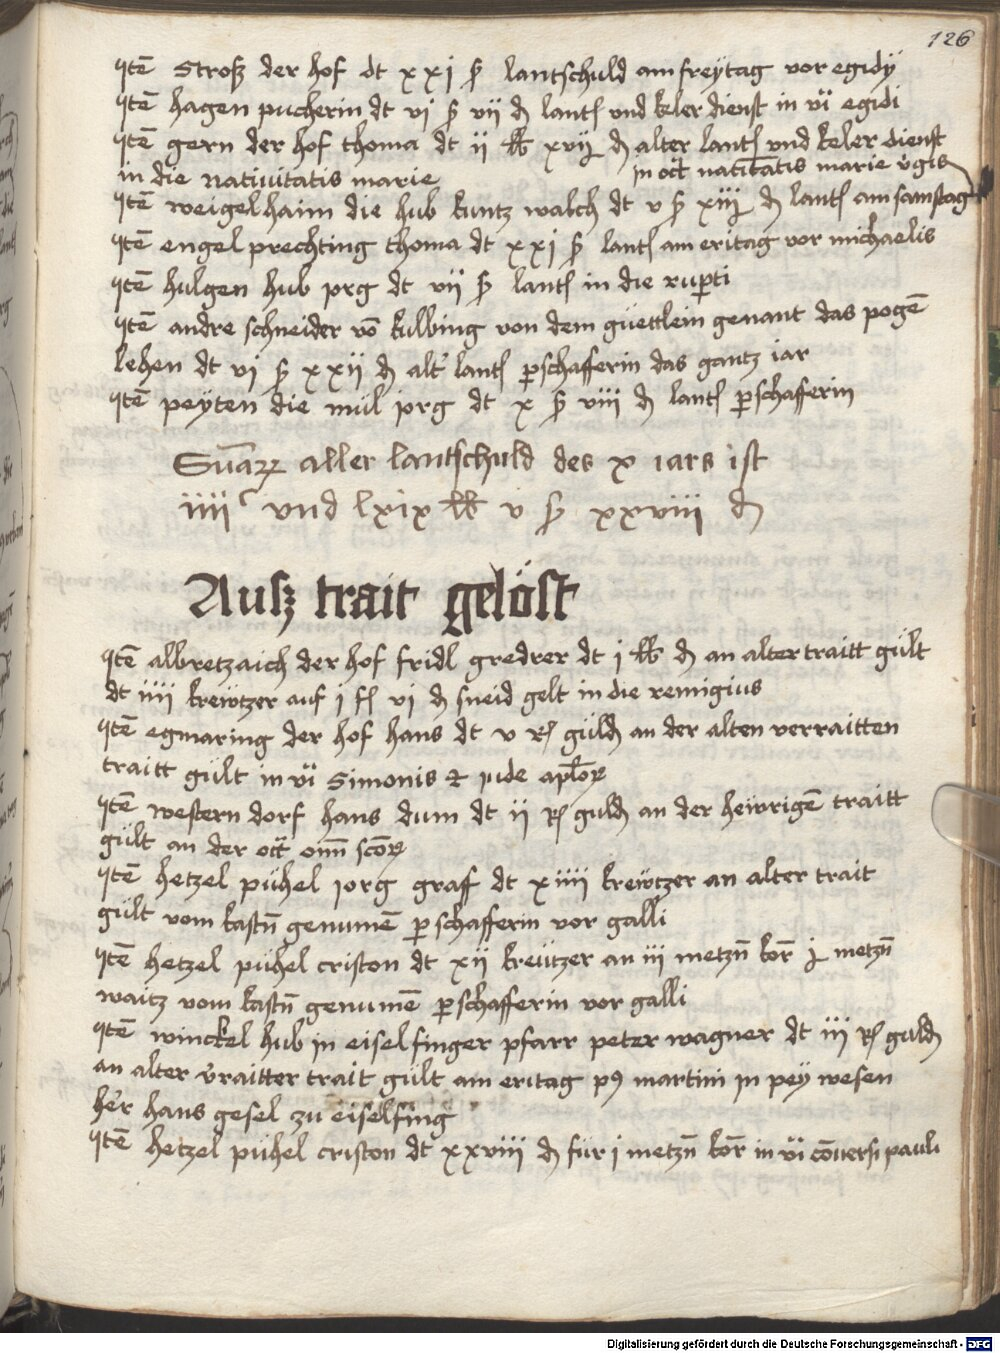 126
Itē Stroß der hof dt xxj ß lantschuld am freÿtag vor egidÿ
Itē hagen pucherin dt vj ß vij ₰ lantſ vnd keler dienst in vī egidi
Itē gern der hof thoma dt ij ℔ xvij ₰ alter lantſ vnd keler dienst
in die natiuitatis marie
in oct natiātatis marie v̄gis
Itē weigelhaim die hub kuntz walch dt v ß xiij ₰ lantſ am samstag
Itē engelprechting thoma dt xxj ß lantſ am eritag vor michaelis
Itē hulgen hub jorg dt vij ß lantſ in die ruꝑti
Itē andre schneider vō kulbing von dem güettlein genant das pogē
lehen dt vj ß xxij ₰ alt lantſ ꝑ schafferin das gantz iar
Itē peÿten die mül jorg dt x ß viij ₰ lantſ ꝑ schafferin
Suāꝝ aller lantschuld des x iars ist
iiij c vnd lxix ℔ v ß xxviij ₰
Ausz trait gelöst
Itē albretzaich der hof fridl gredrer dt j ℔ ₰ an alter traitt gült
dt iiij kreẅtzer auf j fl vj ₰ sneid gelt in die remigius
Itē egmaring der hof hans dt v Rſ güld an der alten verraitten
traitt gült in vī Simonis et jude aplōꝝ
Itē western dorf hans dum dt ij Rſ guld an der heẅrigē traitt
gült an der oct̄ om̄ scōꝝ
Itē hetzel pühel jorg graff dt xiiij kreẅtzer an alter trait
gült vom kastn̄ genumē ꝑ schafferin vor galli
Itē hetzel pühel criston dt xij kreützer an iij metzn̄ kor̄ j metzn̄
waitz vom kastn̄ genumē ꝑ schafferin vor galli
Itē winckel hub in eiselfinger pfarr peter wagner dt iij Rſ guld
an alter v̄raitter trait gült am eritag pꝰ martini in peÿ wesen
her hans gesel zu eiselfing
Itē hetzel pühel criston dt xxviij ₰ für j metzn̄ kor̄ in vī cōuersi pauli
Digitalisierung gefördert durch die Deutsche Forschungsgemeinschaft - DFG